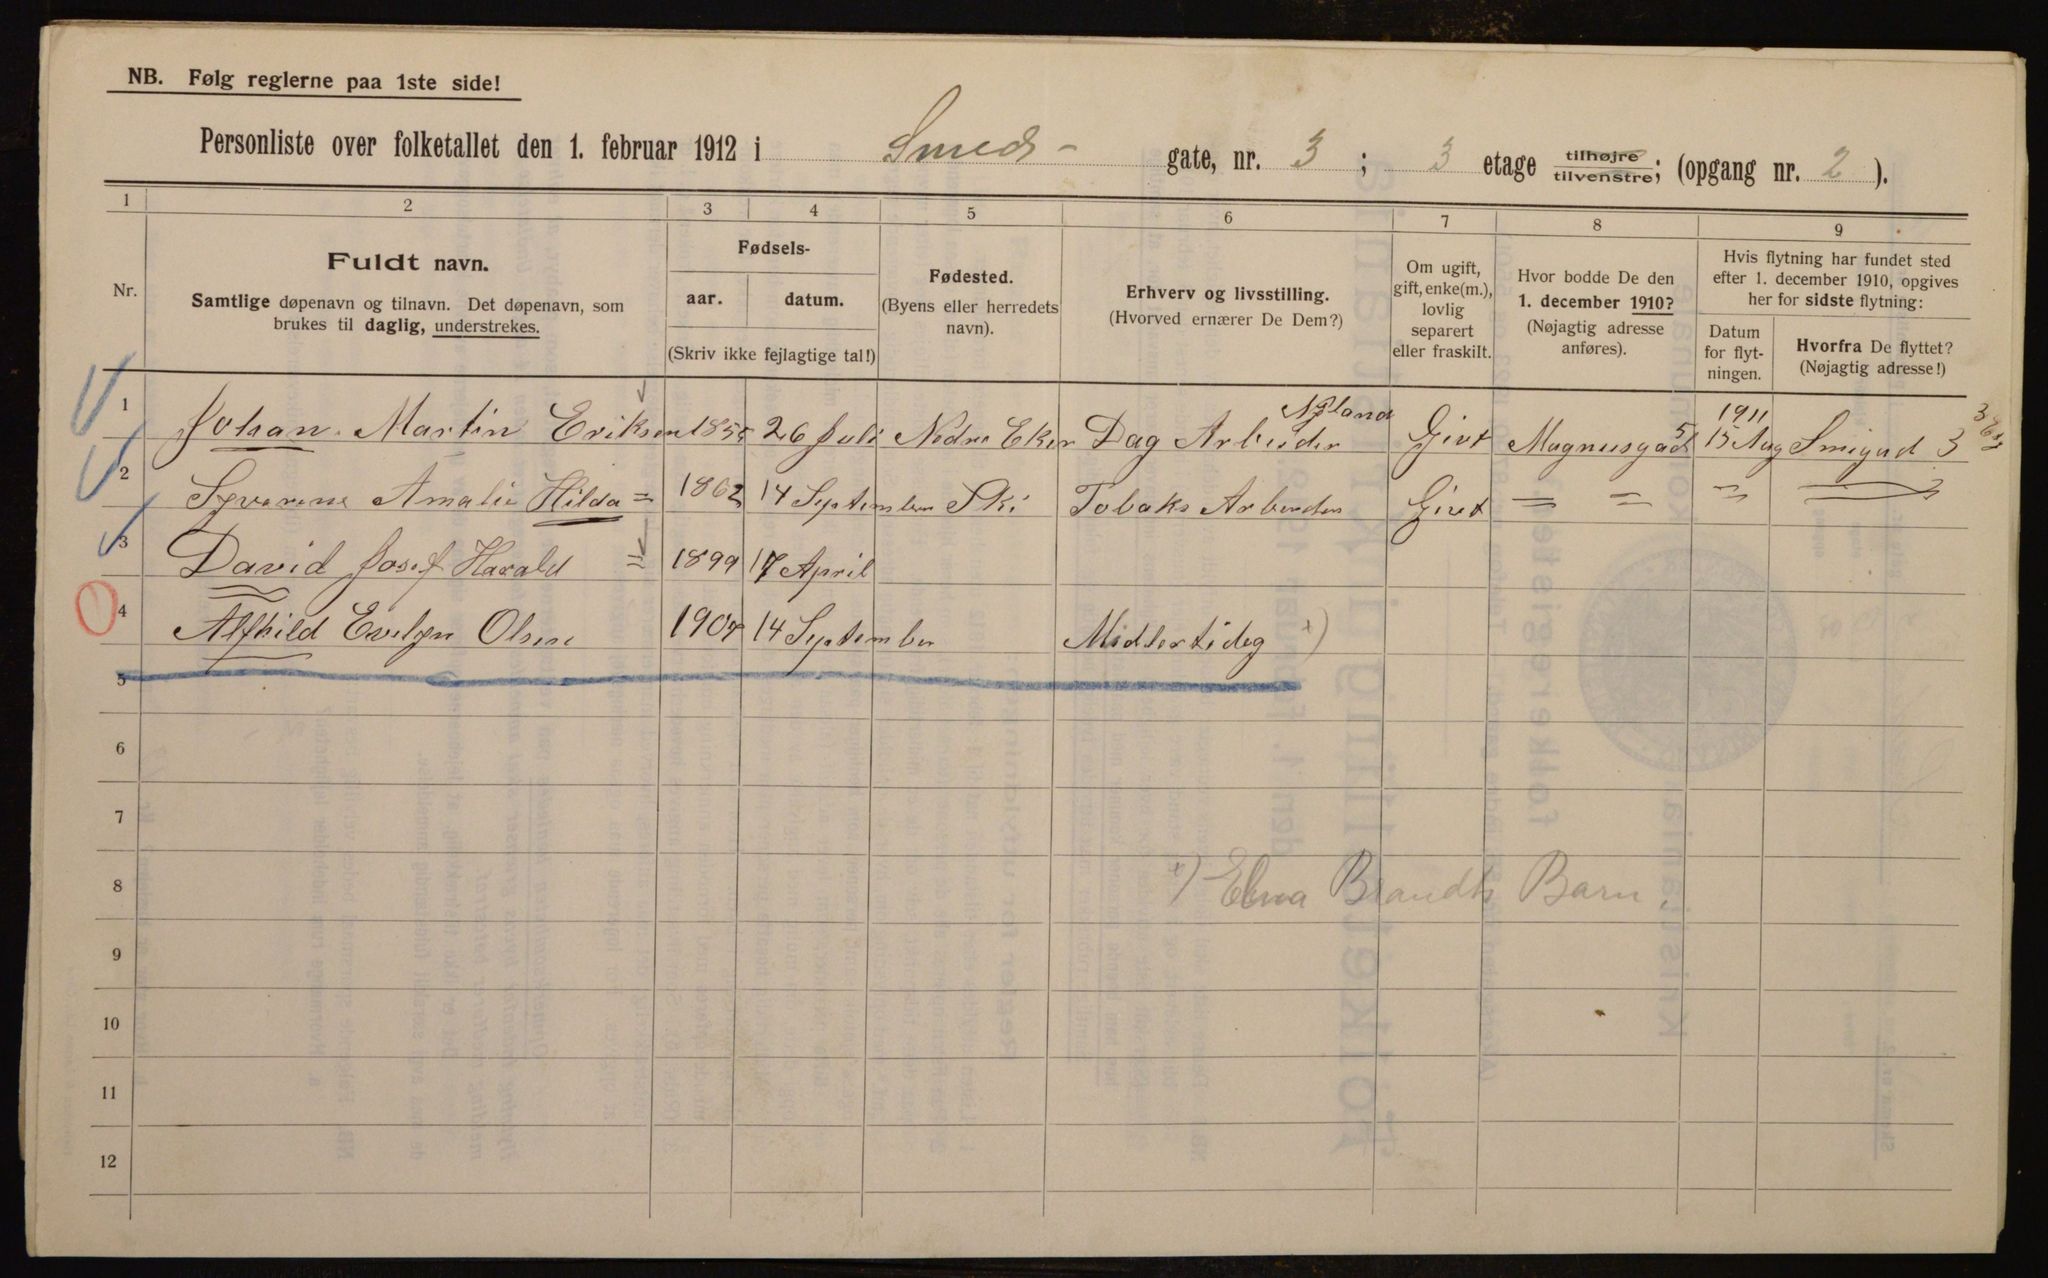 NB. Følg reglerne paa 1ste side!
Personliste over folketallet den 1. februar 1912 i Smeds- gate, nr. 3 ; 3 etage tilhøjre tilvenstre; (opgang nr. 2 ).
1 2 3 4 5 6 7 8 9
Nr.
Fuldt navn.
Samtlige døpenavn og tilnavn. Det døpenavn, som
brukes til daglig, understrekes.
Fødsels-
aar. datum.
(Skriv ikke fejlagtige tal!)
Fødested.
(Byens eller herredets
navn).
Erhverv og livsstilling.
(Hvorved ernærer De Dem?)
Om ugift,
gift, enke(m.),
lovlig
separert
eller fraskilt.
Hvor bodde De den
1. december 1910?
(Nøjagtig adresse
anføres).
Hvis flytning har fundet sted
efter 1. december 1910, opgives
her for sidste flytning:
Datum
for flyt-
ningen.
Hvorfra De flyttet?
(Nøjagtig adresse!)
1 Johan Martin Eriksen 1855 26 Juli Nedre Eker Dag Arbeider Nyland Givt Magnusgad 5 1911 15 Aug Smigad 3
2 Syverine Amalie Hilda = 1862 14 September Ski Tobaks Arbender Givt = = = =
3 David Josef Harald = 1899 17 April
4 Alfhild Evelyn Olsen 1907 14 September Midlertideg x)
5
6
7
8 x) Elna Brandts Barn
9
10
11
12